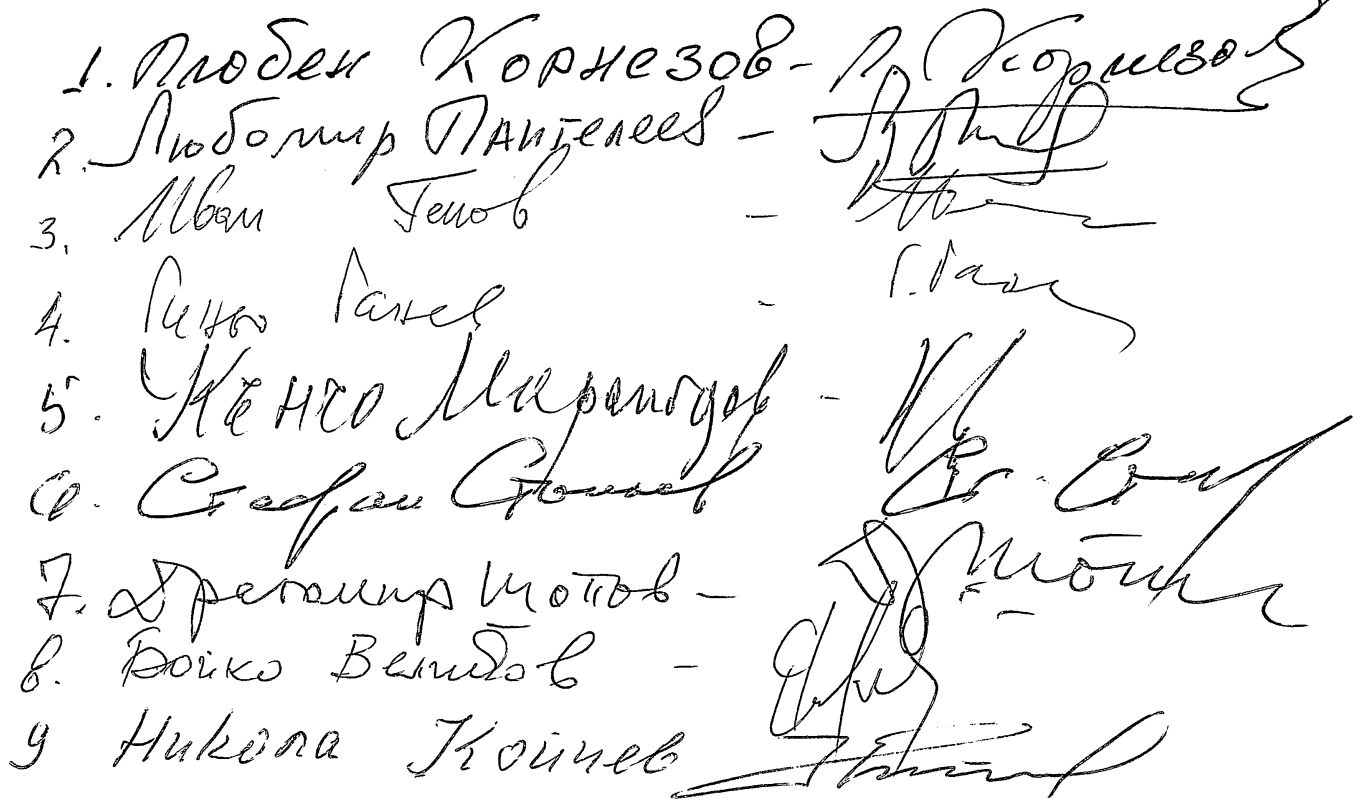 1. Любен Корнезов - Л. Корнезов
2. Любомир Пантелеев -
3. Иван Генов -
4. Гиньо Ганев - Г. Ганев
5. Кънчо Марангозов -
6. Стефан Стоилов Ст. Сто
7. Драгомир Шопов - Шопов
8. Бойко Великов -
9 Никола Койчев